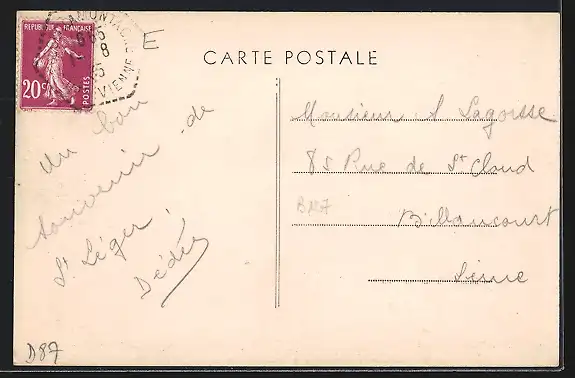 REPUBLIQUE FRANÇAISE
20c
POSTES
LAMONTAGNE
5 8
VIENNE
E
CARTE POSTALE
Un bon
souvenir de
St Léger !
Dédée
Monsieur A Lagorsse
85 Rue de St Cloud
Billancourt
Seine
D87